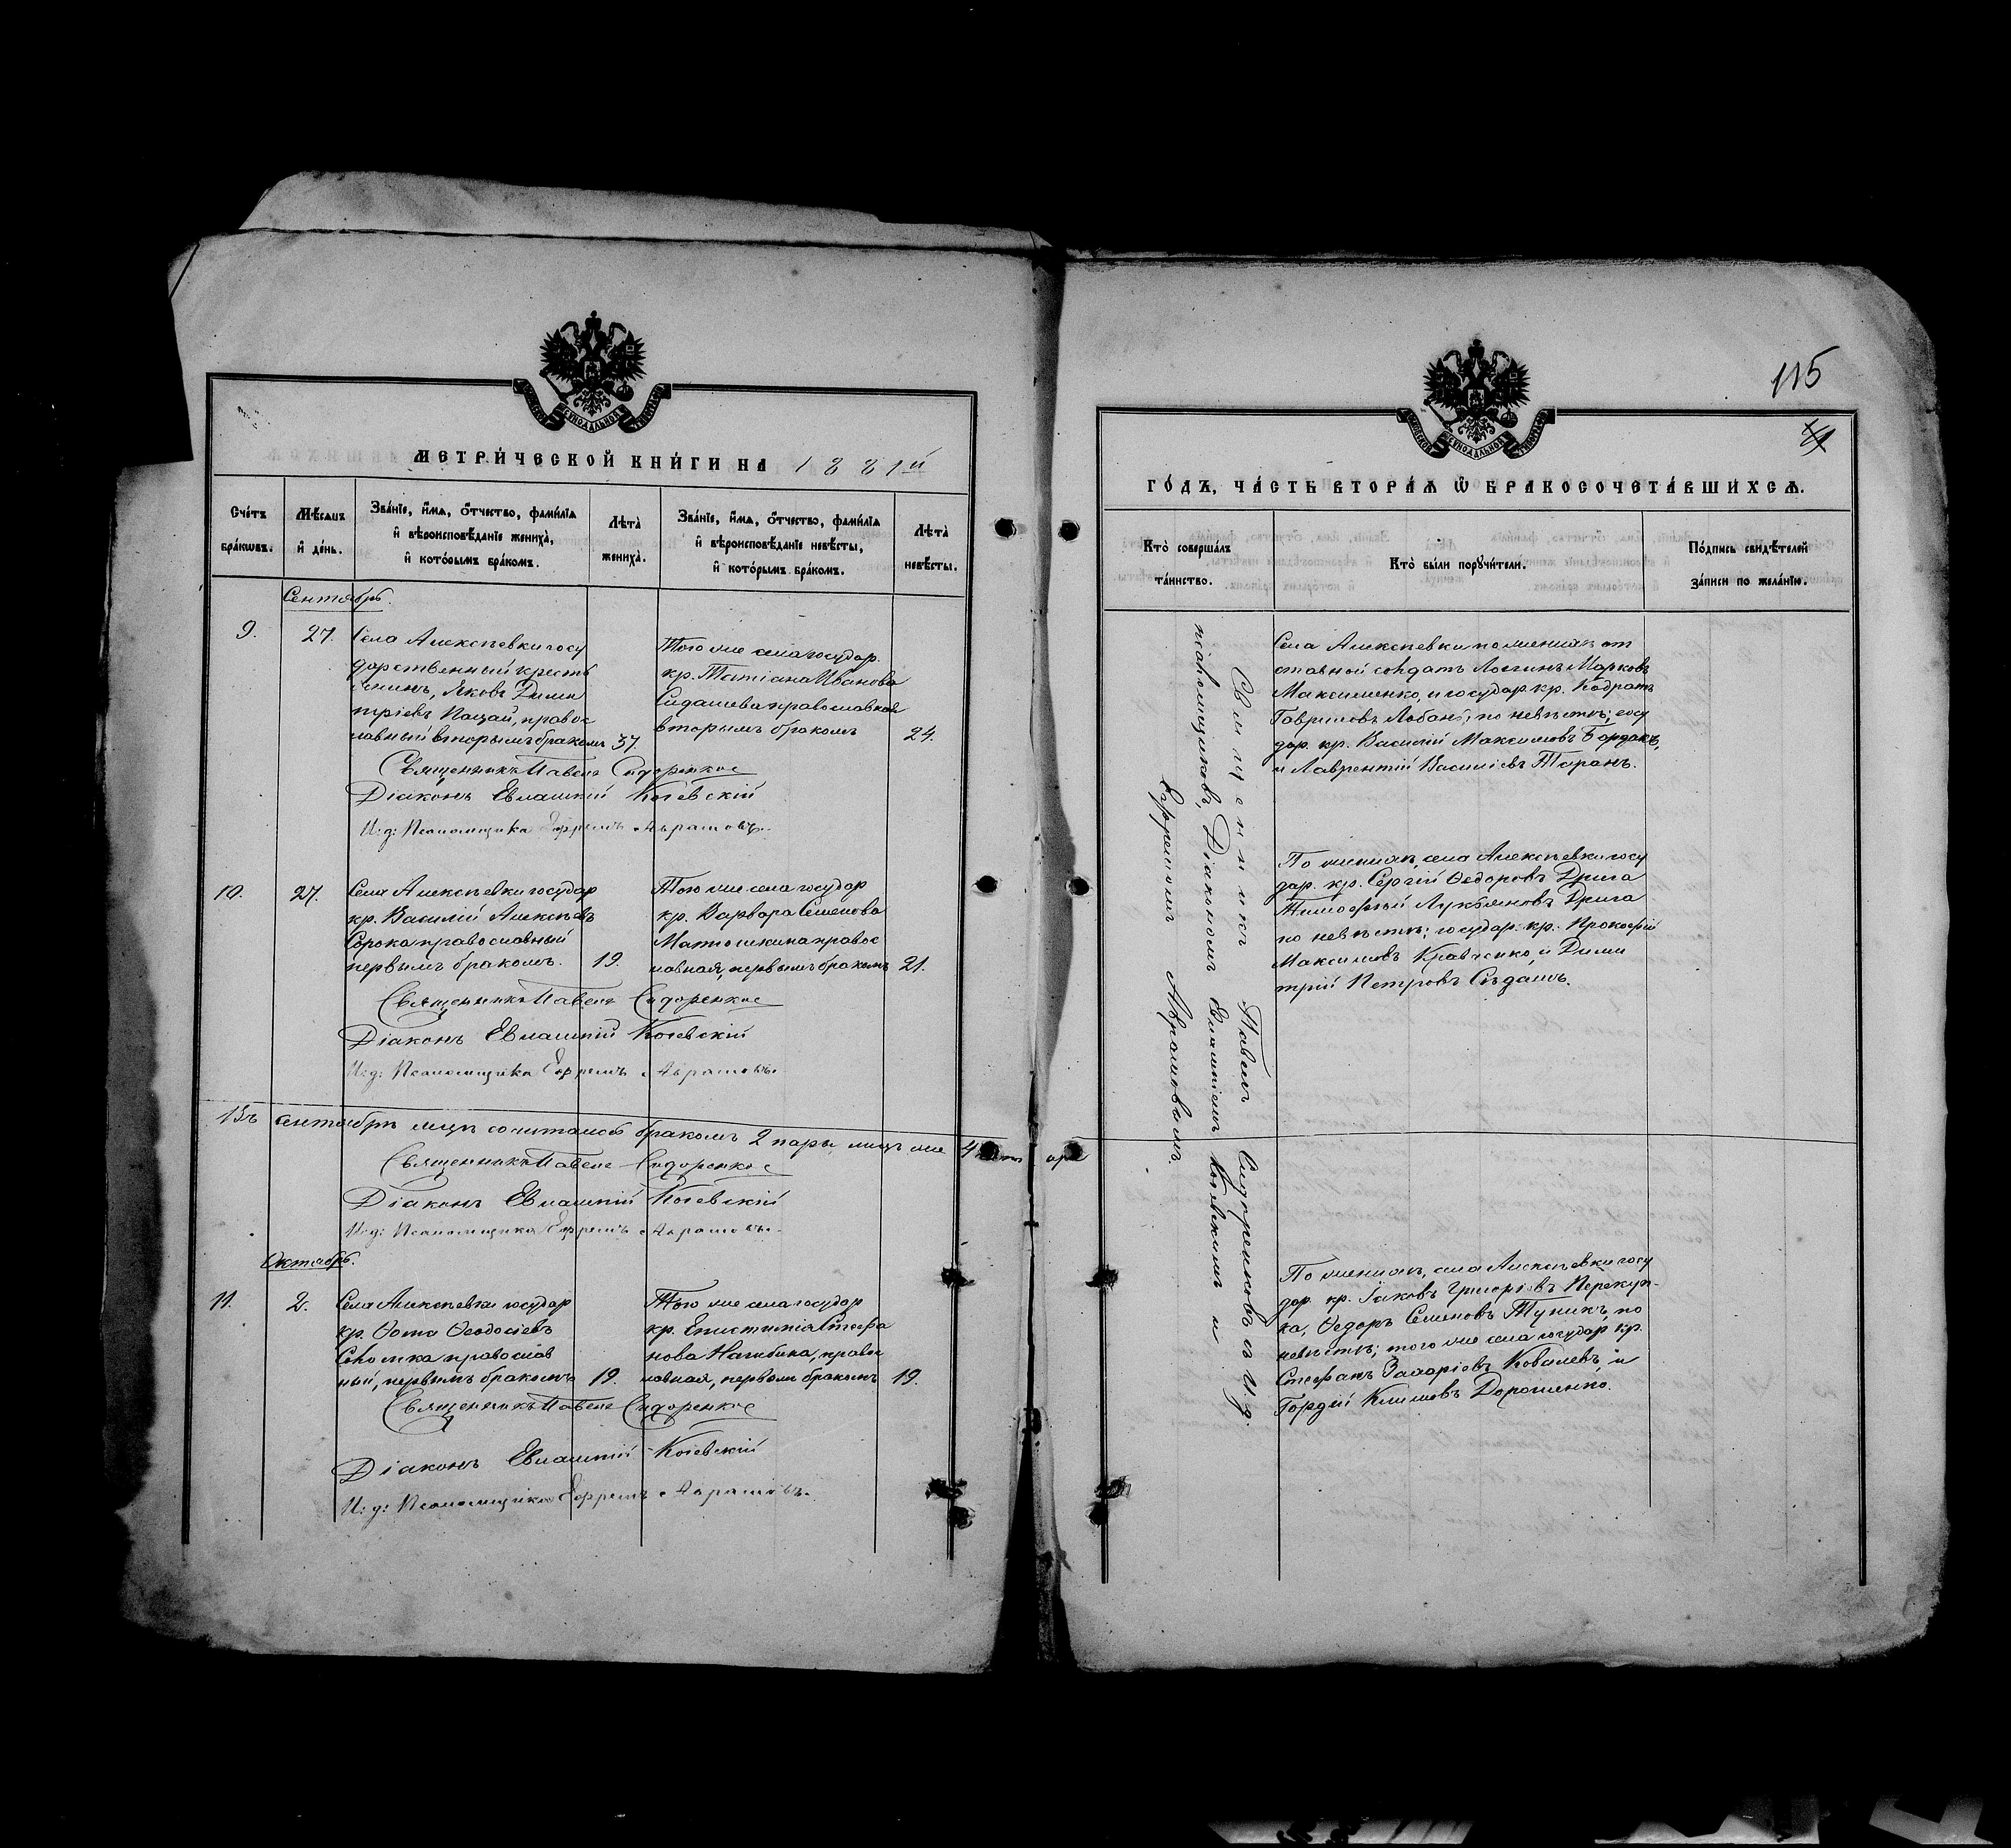 МЕТРИ́ЧЕСКОЙ КНИ́ГИ НА 1881й
Сче́тъ бра́кωвъ.
Мѣ́сѧцъ и҆ де́нь.
Зва́нїе, и҆́мѧ, ѻ҆́тчество, фами́лїѧ
и҆ вѣроисповѣ́данїе жениха̀,
и҆ кото́рымъ бра́комъ.
Лѣта̀ жениха̀.
Зва́нїе, и҆́мѧ, ѻ҆́тчество, фами́лїѧ
и҆ вѣроисповѣ́данїе невѣ́сты,
и҆ кото́рымъ бра́комъ.
Лѣта̀ невѣ́сты.
Сентябрь.
9.
27.
Села Алексѣевки госу
дарственный кресть
янинъ, Яковъ Дими
тріевъ Пацай, правос
лавный вторымъ бракомъ
37.
Того же села государ.
кр. Татіана Иванова
Сидашева православная
вторымъ бракомъ
24.
Священникъ Павелъ Сидоренков
Діаконъ Евлампій Когевскій
И: д: Псаломщика Ефремъ Аврамовъ.
10.
27.
Села Алексѣевки государ
кр. Василій Алексѣевъ
Сорока православный
первымъ бракомъ.
19.
Того же села государ
кр. Варвара Семенова
Матюшкина правос
лавная, первымъ бракомъ
21.
Священникъ Павелъ Сидоренков
Діаконъ Евлампій Когевскій
И: д: Псаломщика Ефремъ Аврамовъ.
Въ сентябрѣ мцѣ сочиталось бракомъ 2 пары, лицъ же 4
Священникъ Павелъ Сидоренков
Діаконъ Евлампій Когевскій
И: д: Псаломщика Ефремъ Аврамовъ.
Октябрь.
11.
2.
Села Алексѣевки государ
кр. Ѳома Ѳеодосіевъ
православ
ный, первымъ бракомъ
19.
Того же села государ
кр. Епистимія Стефа
нова Нагибина, правос
лавная, первымъ бракомъ
19.
Священникъ Павелъ Сидоренков
Діаконъ Евлампій Когевскій
И: д: Псаломщика Ефремъ Аврамовъ.
115
ГО́ДЪ, ЧА́СТЬ ВТОРА́Ѧ Ѡ҆ БРАКОСОЧЕТА́ВШИХСѦ.
Кто̀ соверша́лъ
та́инство.
Кто̀ бы́ли порꙋчи́тели.
По́дпись свидѣ́телей
за́писи по жела́нїю.
Священникъ Павелъ Сидоренковъ съ и. д.
псаломщиковъ, Діакономъ Евлампіемъ Когевскимъ и
Ефремомъ Аврамовымъ.
Села Алексѣевки по женихѣ от
ставной солдатъ Логинъ Марковъ
Максименко, и государ. кр. Кодратъ
Гавриловъ Лобань; по невѣстѣ; госу
дар. кр. Василій Максимовъ Бордакъ,
и Лаврентій Василіевъ Таранъ.
По женихѣ, села Алексѣевки госу
дар. кр. Сергій Ѳедоровъ Дрига
Тимоѳей Лукьяновъ Дрига
по невѣстѣ; государ. кр. Прокофій
Максимовъ Кравченко, и Дими
трій Петровъ Сѣдашъ.
По женихѣ, села Алексѣевки госу
дар. кр. Іаковъ Григоріевъ Перекуп-
ка, Ѳедоръ Семеновъ Тупикъ, по
невѣстѣ; того же села государ. кр.
Стефанъ Захаріевъ Ковалевъ, и
Гордій Климовъ Дорошенко.